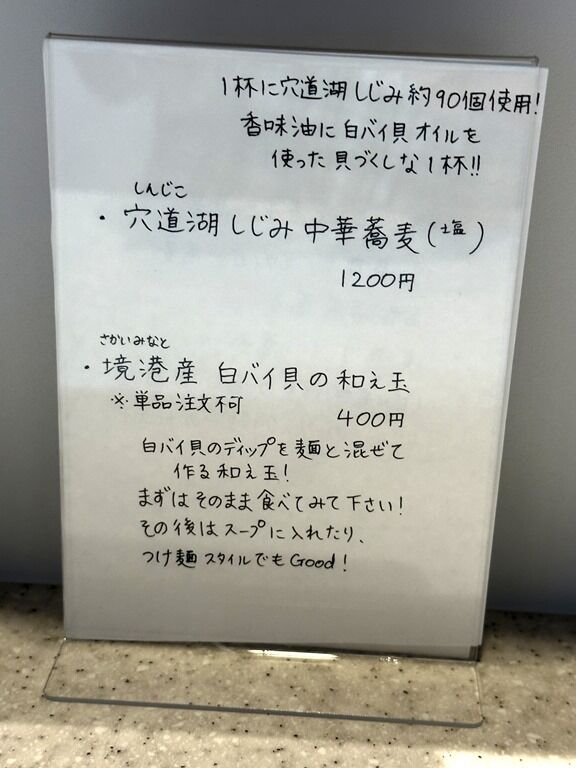 1杯に宍道湖しじみ約90個使用!
香味油に白バイ貝オイルを
使った貝づくしな1杯!!
しんじこ
・宍道湖しじみ中華蕎麦(塩)
1200円
さかいみなと
・境港産 白バイ貝の和え玉
※単品注文不可 400円
白バイ貝のディップを麺と混ぜて
作る和え玉!
まずはそのまま食べてみて下さい!
その後はスープに入れたり、
つけ麺スタイルでもGood!